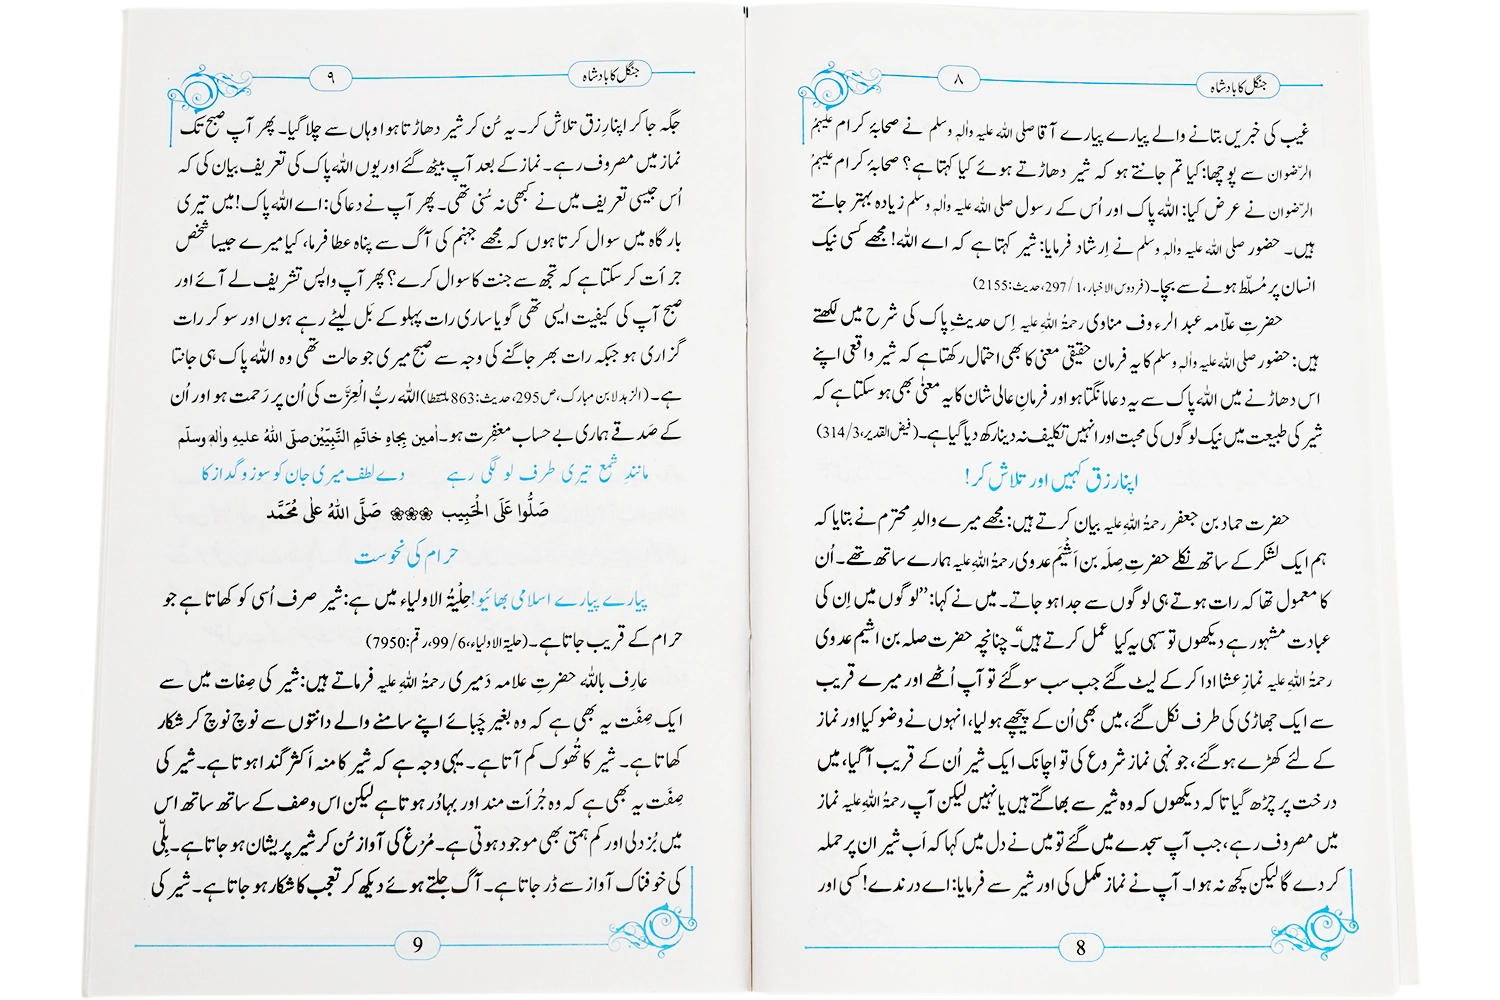 جنگل کا بادشاہ
۸
غیب کی خبریں بتانے والے پیارے پیارے آقا صلی اللہ علیہ واٰلہٖ وسلم نے صحابۂ کرام علیہمُ
الرّضوان سے پوچھا: کیا تم جانتے ہو کہ شیر دھاڑتے ہوئے کیا کہتا ہے؟ صحابۂ کرام علیہمُ
الرّضوان نے عرض کیا: اللہ پاک اور اُس کے رسول صلی اللہ علیہ واٰلہٖ وسلم زیادہ بہتر جانتے
ہیں۔ حضور صلی اللہ علیہ واٰلہٖ وسلم نے اِرشاد فرمایا: شیر کہتا ہے کہ اے اللہ! مجھے کسی نیک
انسان پر مُسلّط ہونے سے بچا۔ (فردوس الاخبار، 1/297، حدیث: 2155)
حضرتِ علّامہ عبد الرءوف مناوی رحمۃُ اللہِ علیہ اِس حدیثِ پاک کی شرح میں لکھتے
ہیں: حضور صلی اللہ علیہ واٰلہٖ وسلم کا یہ فرمان حقیقی معنیٰ کا بھی احتمال رکھتا ہے کہ شیر واقعی اپنے
اس دھاڑنے میں اللہ پاک سے یہ دعا مانگتا ہو اور فرمانِ عالی شان کا یہ معنیٰ بھی ہو سکتا ہے کہ
شیر کی طبیعت میں نیک لوگوں کی محبت اور انہیں تکلیف نہ دینا رکھ دیا گیا ہے۔ (فیض القدیر، 3/314)
اپنا رزق کہیں اور تلاش کر!
حضرت حماد بن جعفر رحمۃُ اللہِ علیہ بیان کرتے ہیں: مجھے میرے والدِ محترم نے بتایا کہ
ہم ایک لشکر کے ساتھ نکلے حضرتِ صِلَہ بن اَشْیَم عدوی رحمۃُ اللہِ علیہ ہمارے ساتھ تھے۔ اُن
کا معمول تھا کہ رات ہوتے ہی لوگوں سے جدا ہو جاتے۔ میں نے کہا: ”لوگوں میں اِن کی
عبادت مشہور ہے دیکھوں تو سہی یہ کیا عمل کرتے ہیں“۔ چنانچہ حضرت صلہ بن اشیم عدوی
رحمۃُ اللہِ علیہ نمازِ عشا ادا کر کے لیٹ گئے جب سب سو گئے تو آپ اُٹھے اور میرے قریب
سے ایک جھاڑی کی طرف نکل گئے، میں بھی اُن کے پیچھے ہو لیا، انہوں نے وضو کیا اور نماز
کے لئے کھڑے ہو گئے، جو نہی نماز شروع کی تو اچانک ایک شیر اُن کے قریب آ گیا، میں
درخت پر چڑھ گیا تا کہ دیکھوں کہ وہ شیر سے بھاگتے ہیں یا نہیں لیکن آپ رحمۃُ اللہِ علیہ نماز
میں مصروف رہے، جب آپ سجدے میں گئے تو میں نے دل میں کہا کہ اَب شیر ان پر حملہ
کر دے گا لیکن کچھ نہ ہوا۔ آپ نے نماز مکمل کی اور شیر سے فرمایا: اے درندے! کسی اور
8
جنگل کا بادشاہ
۹
جگہ جا کر اپنا رِزق تلاش کر۔ یہ سُن کر شیر دھاڑتا ہوا وہاں سے چلا گیا۔ پھر آپ صبح تک
نماز میں مصروف رہے۔ نماز کے بعد آپ بیٹھ گئے اور یوں اللہ پاک کی تعریف بیان کی کہ
اُس جیسی تعریف میں نے کبھی نہ سُنی تھی۔ پھر آپ نے دعا کی: اے اللہ پاک! میں تیری
بارگاہ میں سوال کرتا ہوں کہ مجھے جہنم کی آگ سے پناہ عطا فرما، کیا میرے جیسا شخص
جرأت کر سکتا ہے کہ تجھ سے جنت کا سوال کرے؟ پھر آپ واپس تشریف لے آئے اور
صبح آپ کی کیفیت ایسی تھی گویا ساری رات پہلو کے بَل لیٹے رہے ہوں اور سو کر رات
گزاری ہو جبکہ رات بھر جاگنے کی وجہ سے صبح میری جو حالت تھی وہ اللہ پاک ہی جانتا
ہے۔ (الزہد لابن مبارک، ص295، حدیث: 863 ملتقطا) اللہ ربُّ الْعِزَّت کی اُن پر رَحمت ہو اور اُن
کے صَدقے ہماری بے حساب مغفِرت ہو۔ اٰمین بِجاہِ خاتَمِ النَّبِیّٖن صلّی اللہُ علیہِ واٰلہٖ وسلّم
مانندِ شمع تیری طرف لو لگی رہے دے لطف میری جان کو سوز و گداز کا
صَلُّوا عَلَی الْحَبِیب ❀❀❀ صَلَّی اللہُ علٰی مُحَمَّد
حرام کی نحوست
پیارے پیارے اسلامی بھائیو! حِلْیۃُ الاولیاء میں ہے: شیر صرف اُسی کو کھاتا ہے جو
حرام کے قریب جاتا ہے۔ (حلیۃ الاولیاء، 6/99، رقم: 7950)
عارِف باللہ حضرتِ علامہ دَمیری رحمۃُ اللہِ علیہ فرماتے ہیں: شیر کی صِفات میں سے
ایک صِفَت یہ بھی ہے کہ وہ بغیر چَبائے اپنے سامنے والے دانتوں سے نوچ نوچ کر شکار
کھاتا ہے۔ شیر کا تُھوک کم آتا ہے۔ یہی وجہ ہے کہ شیر کا منہ اَکثر گندا ہوتا ہے۔ شیر کی
صِفَت یہ بھی ہے کہ وہ جُرأت مند اور بہادُر ہوتا ہے لیکن اس وصف کے ساتھ ساتھ اس
میں بُزدلی اور کم ہمتی بھی موجود ہوتی ہے۔ مُرغ کی آواز سُن کر شیر پریشان ہو جاتا ہے۔ بِلّی
کی خوفناک آواز سے ڈر جاتا ہے۔ آگ جلتے ہوئے دیکھ کر تعجب کا شکار ہو جاتا ہے۔ شیر کی
9